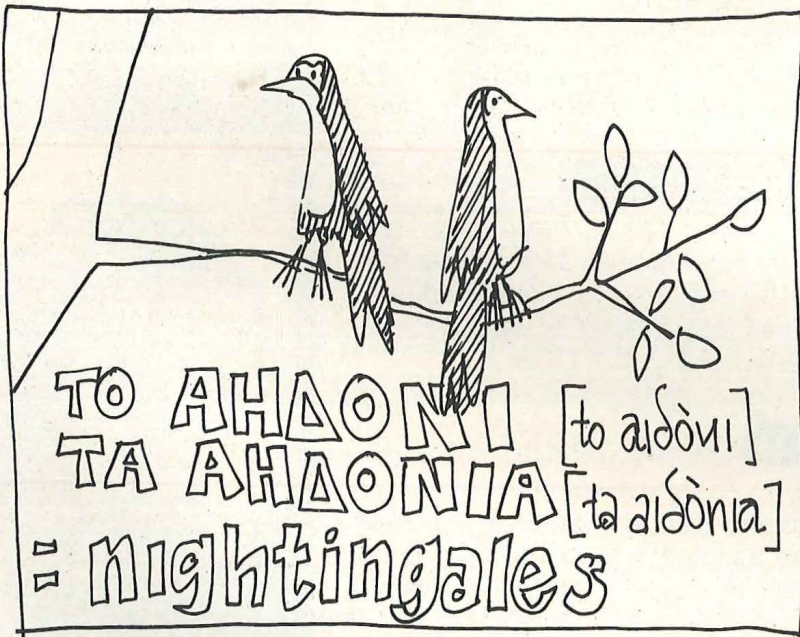 ΤΟ ΑΗΔΟΝΙ [to aιδònι]
ΤΑ ΑΗΔΟΝΙΑ [ta aιδònιa]
= nightingales